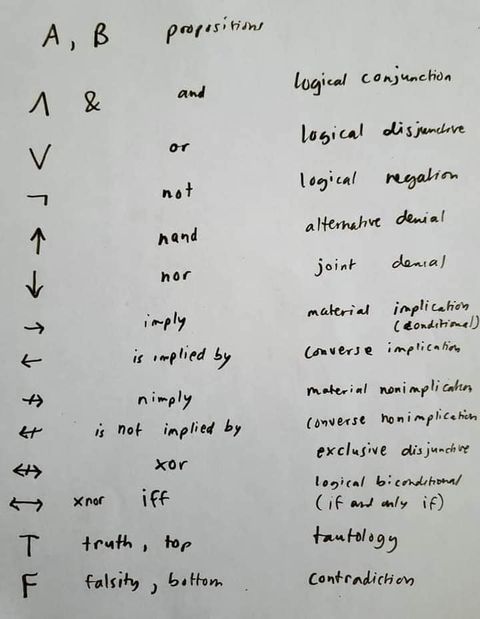 A, B propositions
∧ & and logical conjunction
∨ or logical disjunctive
¬ not logical negation
↑ nand alternative denial
↓ nor joint denial
→ imply material implication (conditional)
← is implied by converse implication
↛ nimply material nonimplication
↚ is not implied by converse nonimplication
↮ xor exclusive disjunctive
↔ xnor iff logical biconditional (if and only if)
T truth, top tautology
F falsity, bottom contradiction